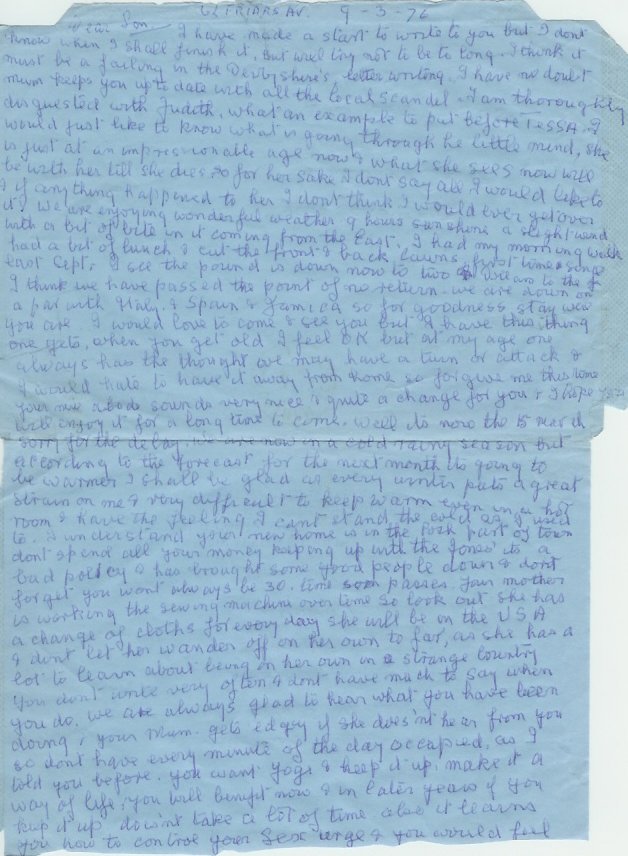 62 FRIARS AV. 9-3-76
Dear Son I have made a start to write to you but I dont
know when I shall finish it, but will try not to be to long. I think it
must be a failing in the Devbyshire's letter writing. I have no doubt
mum keeps you up to date with all the local scandel. I am thoroughly
disguested with Judith, what an example to put before TESSA. I
would just like to know what is going through he little mind, she
is just at an impressionable age now & what she sees now will
be with her till she dies, so for her sake I dont say all I would like to
& if anything happened to her I don't think I would ever get over
it. We are enjoying wonderful weather 9 hours sunshine a slight wind
with a bit of bite in it coming from the East. I had my morning walk
had a bit of lunch & cut the front & back lawns, first time since
last Sept. I see the pound is down now to two to the £
I think we have passed the point of no return. we are down on
a par with Italy, & Spain & Jamica so for goodness stay
you are. I would love to come & see you but I have this thing
one gets, when you get old I feel OK but at my age one
always has the thought we may have a turn or attack &
I would hate to have it away from home so forgive me this time
your new abode sounds very nice & quite a change for you & I hope you
will enjoy it for a long time to come. Well its now the 15 March
sorry for the delay. we are now in a cold rainy season but
according to the forecast for the next month its going to
be warmer I shall be glad as every winter puts a great
strain on me & very difficult to keep warm even in a hot
room & have the feeling I cant stand the cold as I used
to. I understand your new home is in the posh part of town
dont spend all your money keeping up with the Jones' its a
bad policy & has brought some good people down & dont
forget you wont always be 30. time soon passes. Your mother
is working the sewing machine over time so look out she has
a change of cloths for every day she will be on the USA
& dont let her wander off on her own to far, as she has a
lot to learn about being on her own in a strange country
You dont write very often & dont have much to say when
you do, we are always glad to hear what you have been
doing & your Mum. gets edgey if she does'nt hear from you
so dont have every minute of the day occupied, as I
told you before. you want Yoga & keep it up, make it a
way of life, you will benefit now & in later years if you
keep it up, does'nt take a lot of time also it learns
you how to control your Sex urge & you would feel